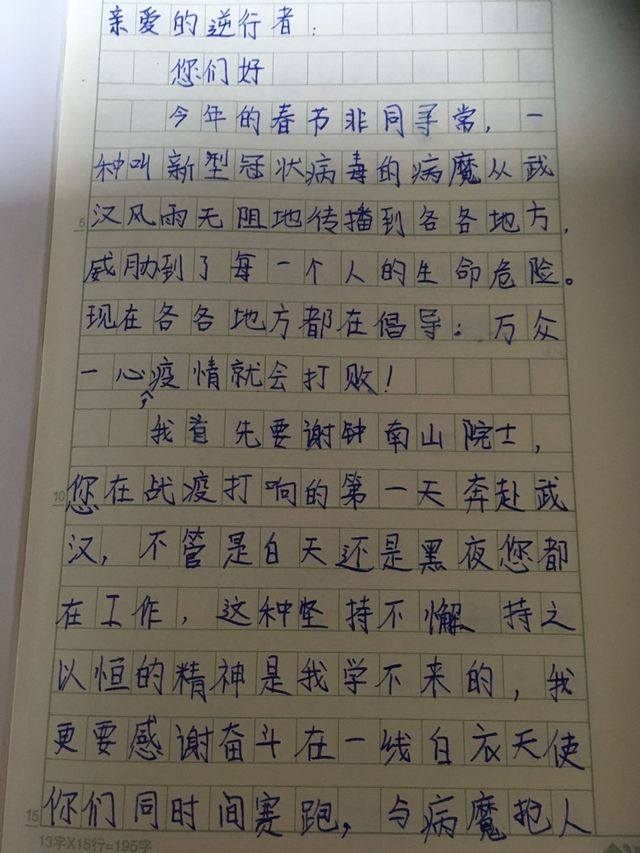 亲爱的逆行者：
您们好
今年的春节非同寻常，一
种叫新型冠状病毒的病魔从武
汉风雨无阻地传播到各各地方，
威胁到了每一个人的生命危险。
现在各各地方都在倡导：万众
一心疫情就会打败！
我首先要谢钟南山院士，
您在战疫打响的第一天奔赴武
汉，不管是白天还是黑夜您都
在工作，这种坚持不懈 持之
以恒的精神是我学不来的，我
更要感谢奋斗在一线白衣天使
你们同时间赛跑，与病魔抢人
5
10
15
13字X15行=195字